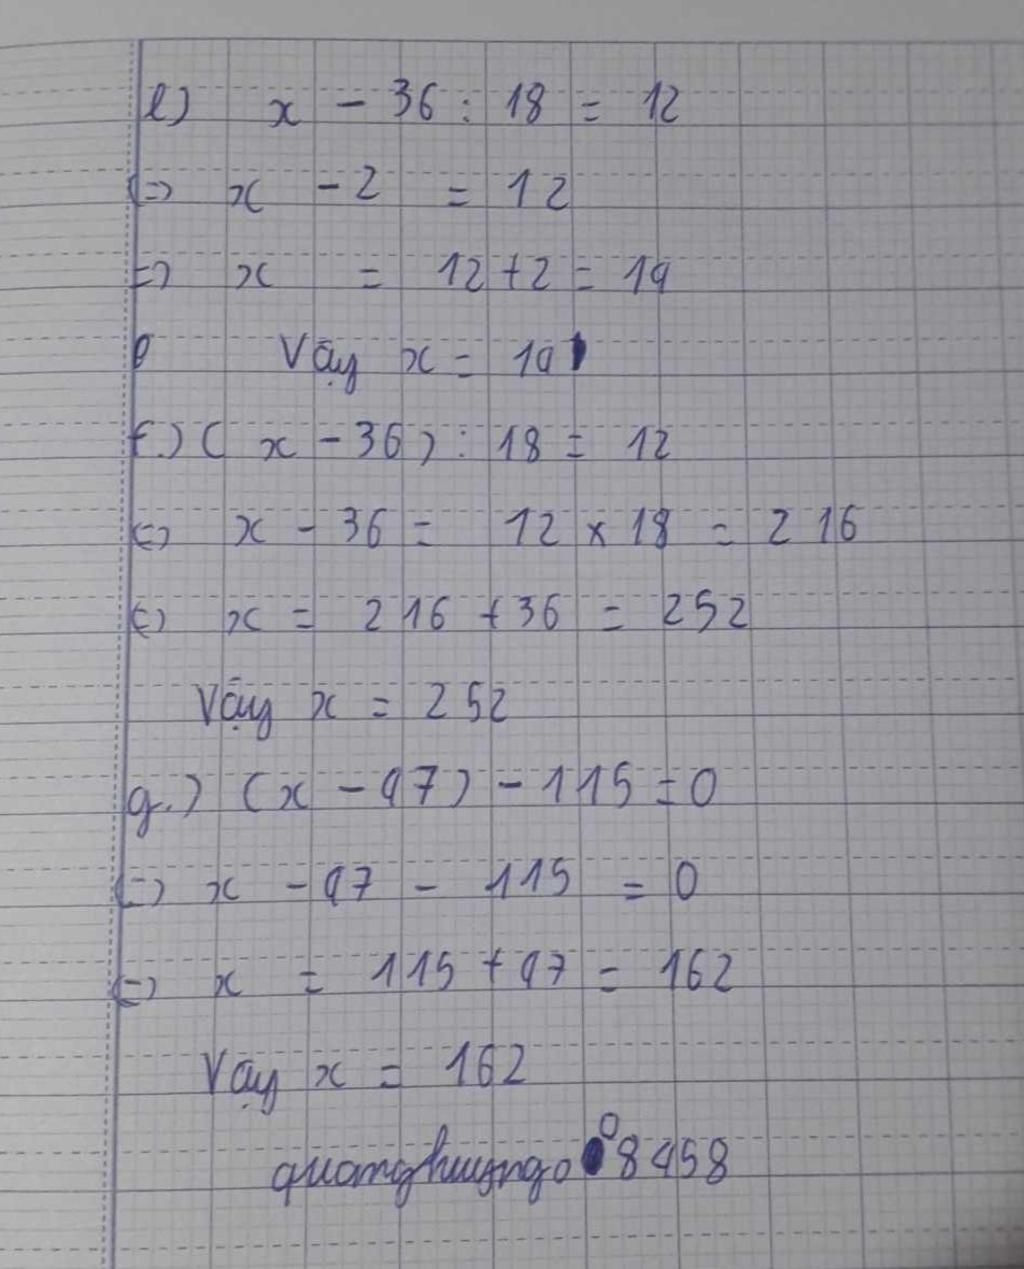 e) x - 36 : 18 = 12
<=> x - 2 = 12
=> x = 12 + 2 = 14
Vậy x = 14
f.) ( x - 36 ) : 18 = 12
<=> x - 36 = 12 x 18 = 216
<=> x = 216 + 36 = 252
Vậy x = 252
g.) (x - 47) - 115 = 0
<=> x - 47 - 115 = 0
<=> x = 115 + 47 = 162
Vậy x = 162
quanghuyngo08458